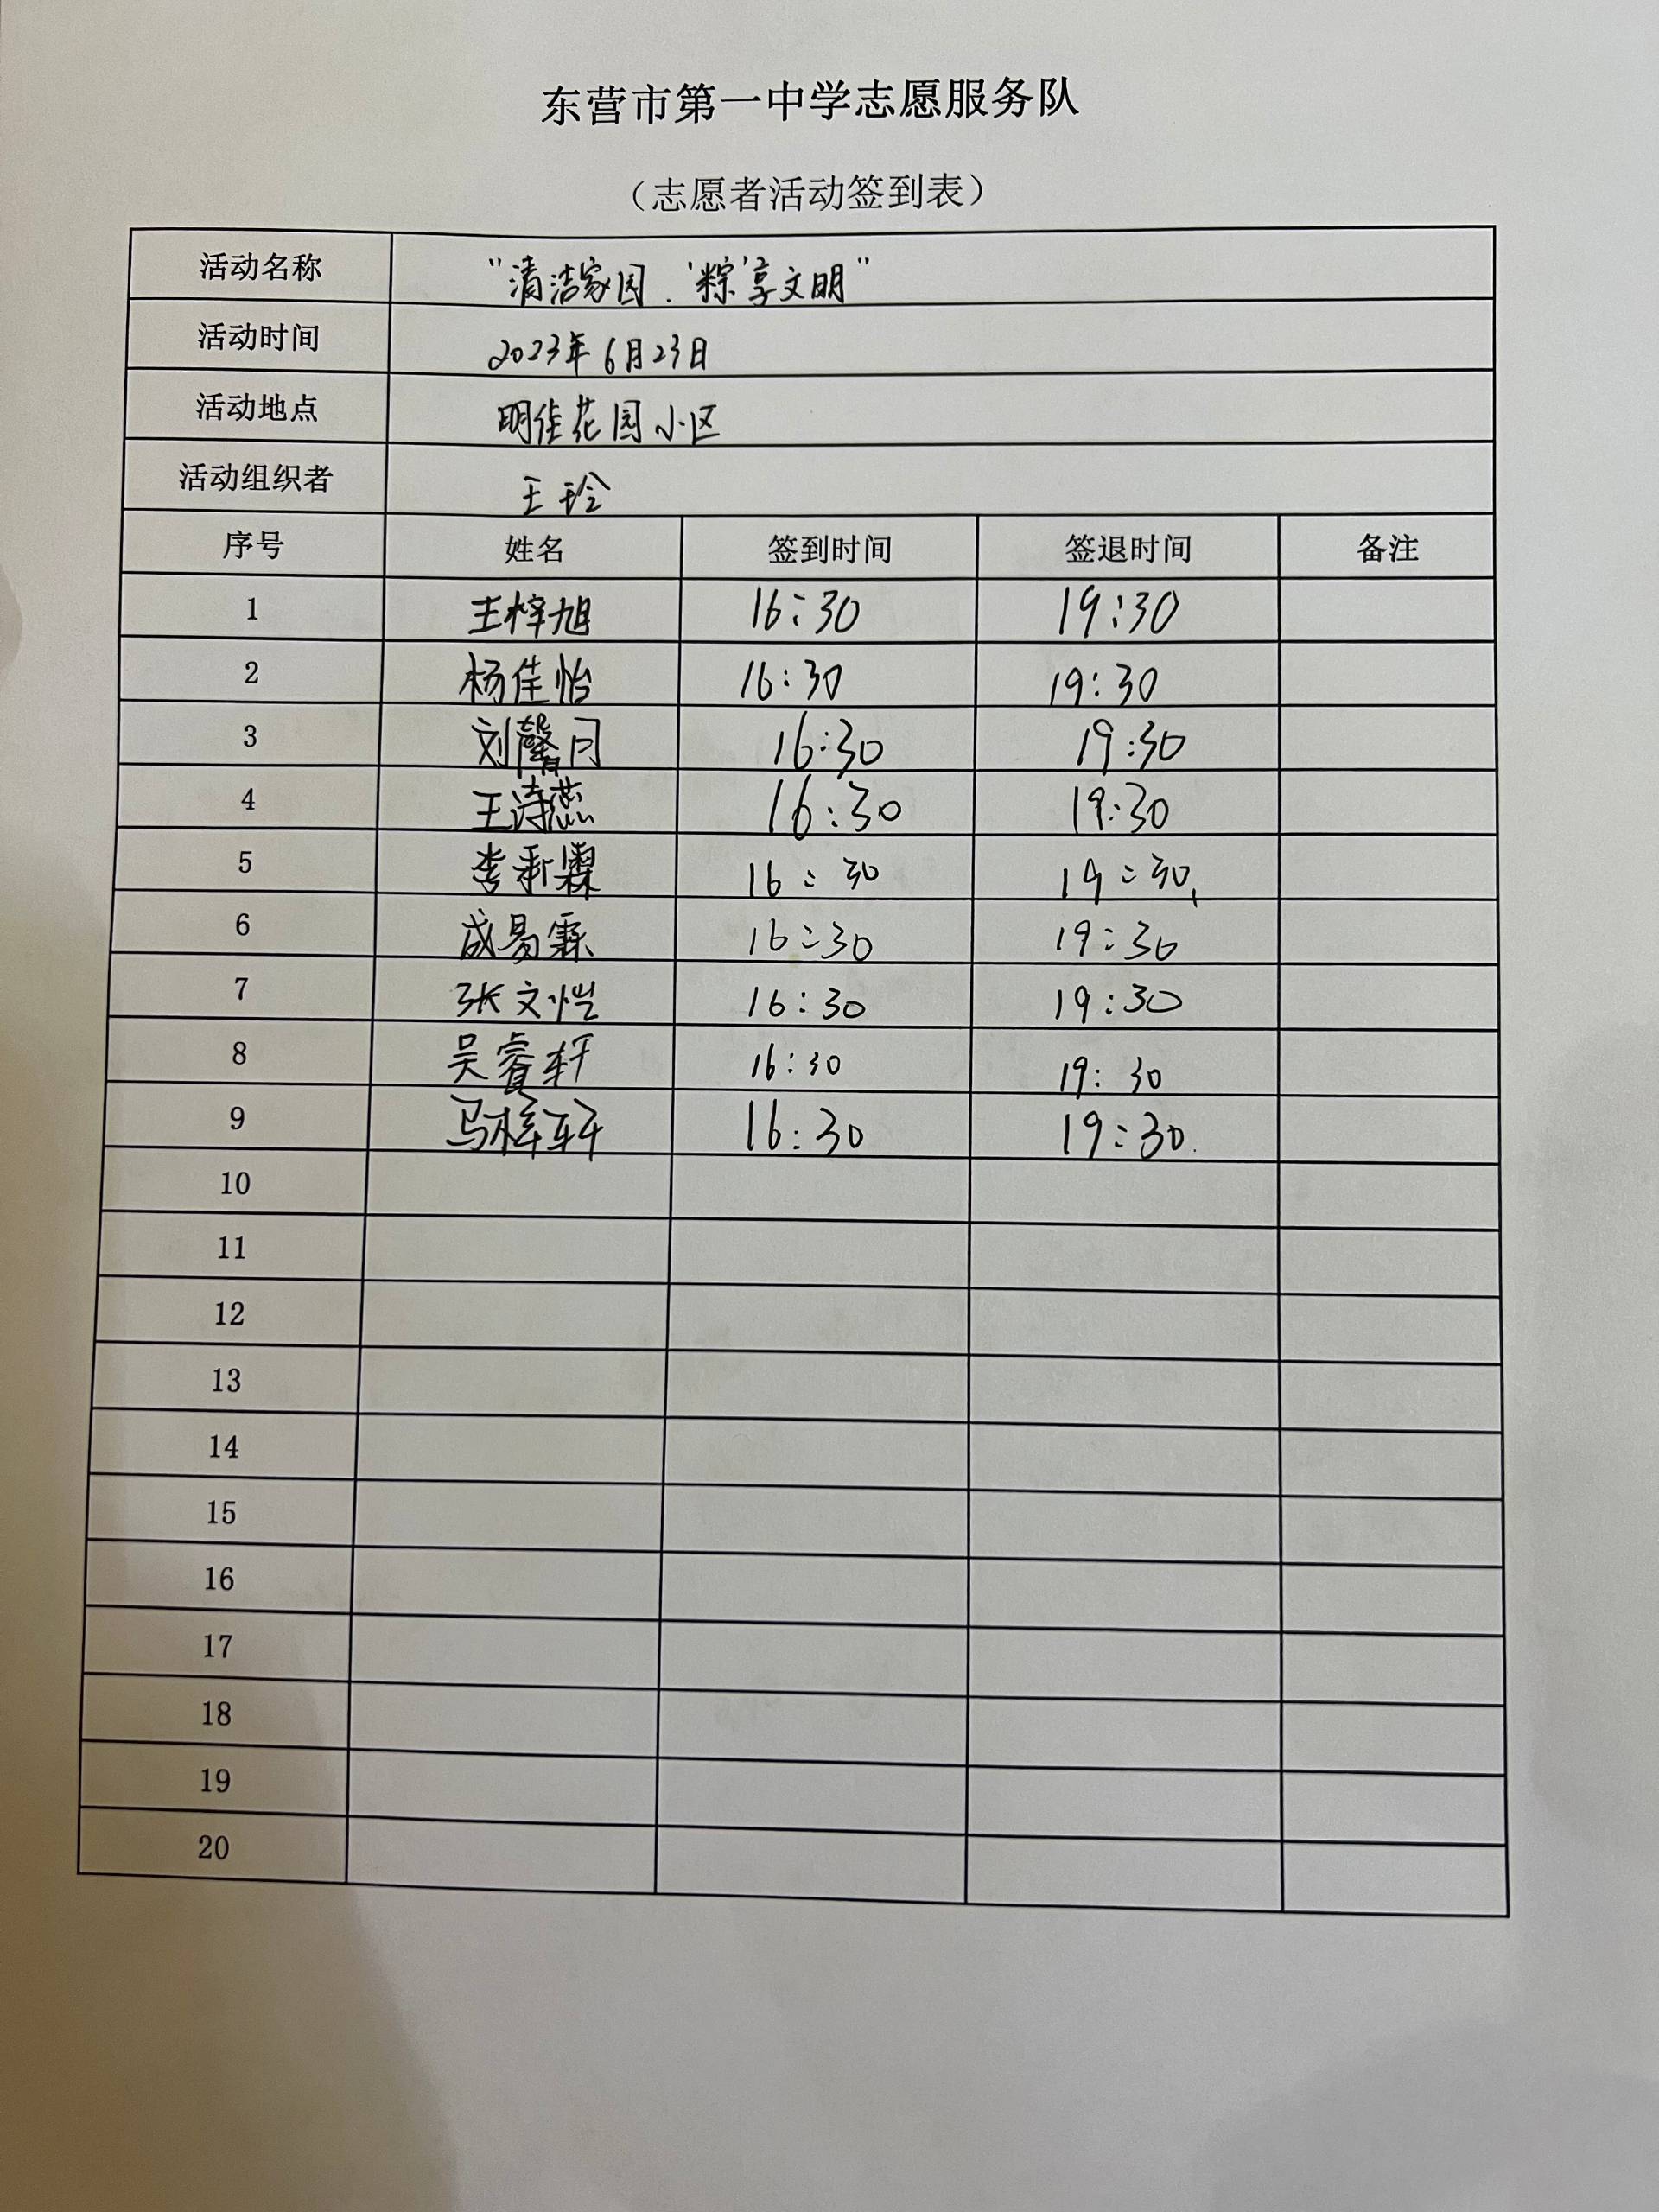 东营市第一中学志愿服务队
（志愿者活动签到表）
活动名称 "清洁家园．'粽'享文明"
活动时间 2023年6月23日
活动地点 明佳花园小区
活动组织者 王玲
序号 姓名 签到时间 签退时间 备注
1 王梓旭 16:30 19:30
2 杨佳怡 16:30 19:30
3 刘馨月 16:30 19:30
4 王诗蕊 16:30 19:30
5 李新霖 16:30 19:30
6 成易霖 16:30 19:30
7 张文恺 16:30 19:30
8 吴睿轩 16:30 19:30
9 马梓轩 16:30 19:30.
10
11
12
13
14
15
16
17
18
19
20